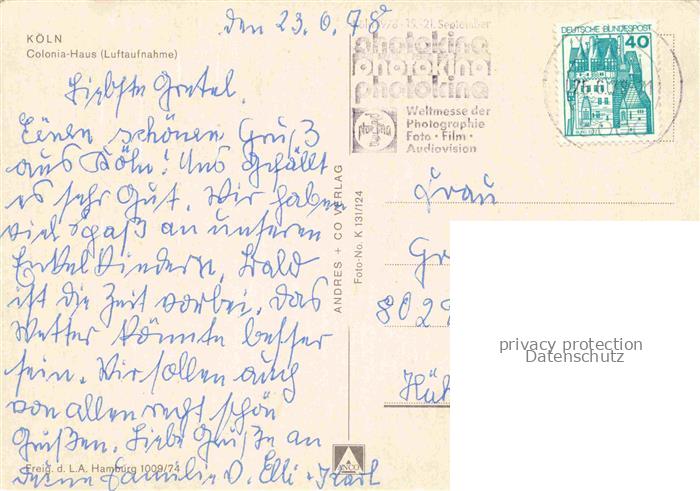 den 23.6.78
KÖLN
Colonia-Haus (Luftaufnahme)
Liebste Gretel.
Einen schönen Gruß
aus Köln! Uns gefällt
es sehr gut. Wir haben
viel Spaß an unseren
Enkelkindern. Bald
ist die Zeit vorbei. Das
Wetter könnte besser
sein. Wir sollen auch
von allen recht schön
Grüßen. Liebe Grüße an
deine Familie v. Elli + Karl
Freig. d. L.A. Hamburg 1009/74
ANDRES + CO VERLAG
Foto-No. K 131/124
ANCO
1978 · 15.-21. September
photokina
photokina
photokina
Weltmesse der
Photographie
Foto · Film ·
Audiovision
DEUTSCHE BUNDESPOST
40
Frau
Gr
802
Hü
privacy protection
Datenschutz